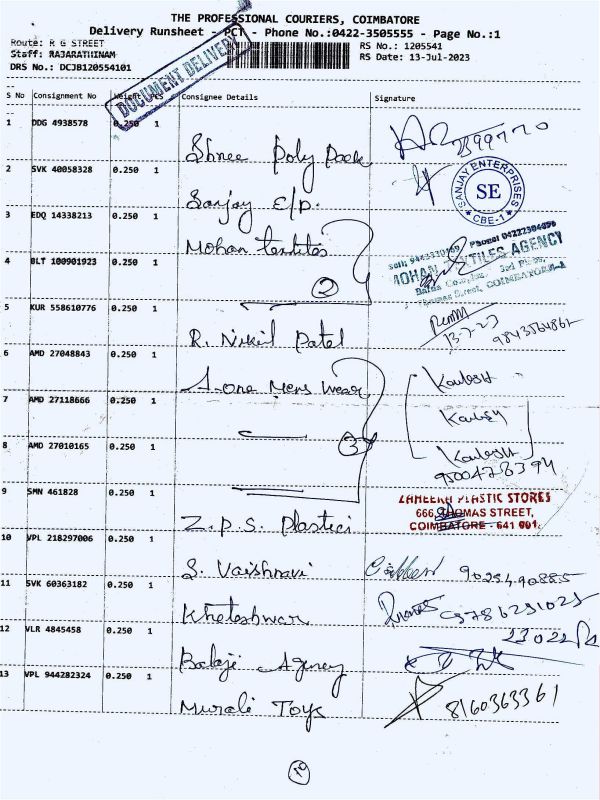 THE PROFESSIONAL COURIERS, COIMBATORE
Delivery Runsheet - PCT - Phone No.:0422-3505555 - Page No.:1
Route: R G STREET
RS No.: 1205541
Staff: RAJARATHINAM
RS Date: 13-Jul-2023
DRS No.: DCJB120554101
DOCUMENT DELIVERY
S No Consignment No Weight PCS Consignee Details Signature
1 DDG 4938578 0.250 1 Shree Poly Pack
2 SVK 40058328 0.250 1 Sanjay E/P.
SANJAY ENTERPRISES SE CBE-1
3 EDQ 14338213 0.250 1 Mohan textiles
4 BLT 100901923 0.250 1 2
MOHAN TEXTILES AGENCY
3rd Floor,
Thomas Street, COIMBATORE-1
5 KUR 558610776 0.250 1 R. Nikil Patel
13-7-23
6 AMD 27048843 0.250 1 A-one Mens Wear
7 AMD 27118666 0.250 1
8 AMD 27010165 0.250 1 3
9500428394
9 SMN 461828 0.250 1 Z.P.S. Plastici
PLASTIC STORES
666, THOMAS STREET,
COIMBATORE - 641 001.
10 VPL 218297006 0.250 1 S. Vaishnavi
11 SVK 60363182 0.250 1 Kheteshwar
12 VLR 4845458 0.250 1 Balaji Agency
13 VPL 944282324 0.250 1 Murali Toys 8160363361